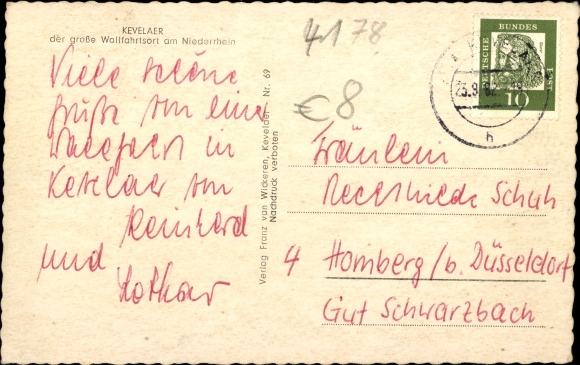 KEVELAER
der große Wallfahrtsort am Niederrhein
Viele schöne
Grüße von einer
Wallfahrt in
Kevelaer von
Reinhard
und
Lothar
Verlag Franz van Wickeren, Kevelaer Nr. 69
Nachdruck verboten
4178
€ 8
DEUTSCHE
BUNDES
POST
10
h
Fräulein
Mechthilde Schuh
4 Homberg/b. Düsseldorf
Gut Schwarzbach